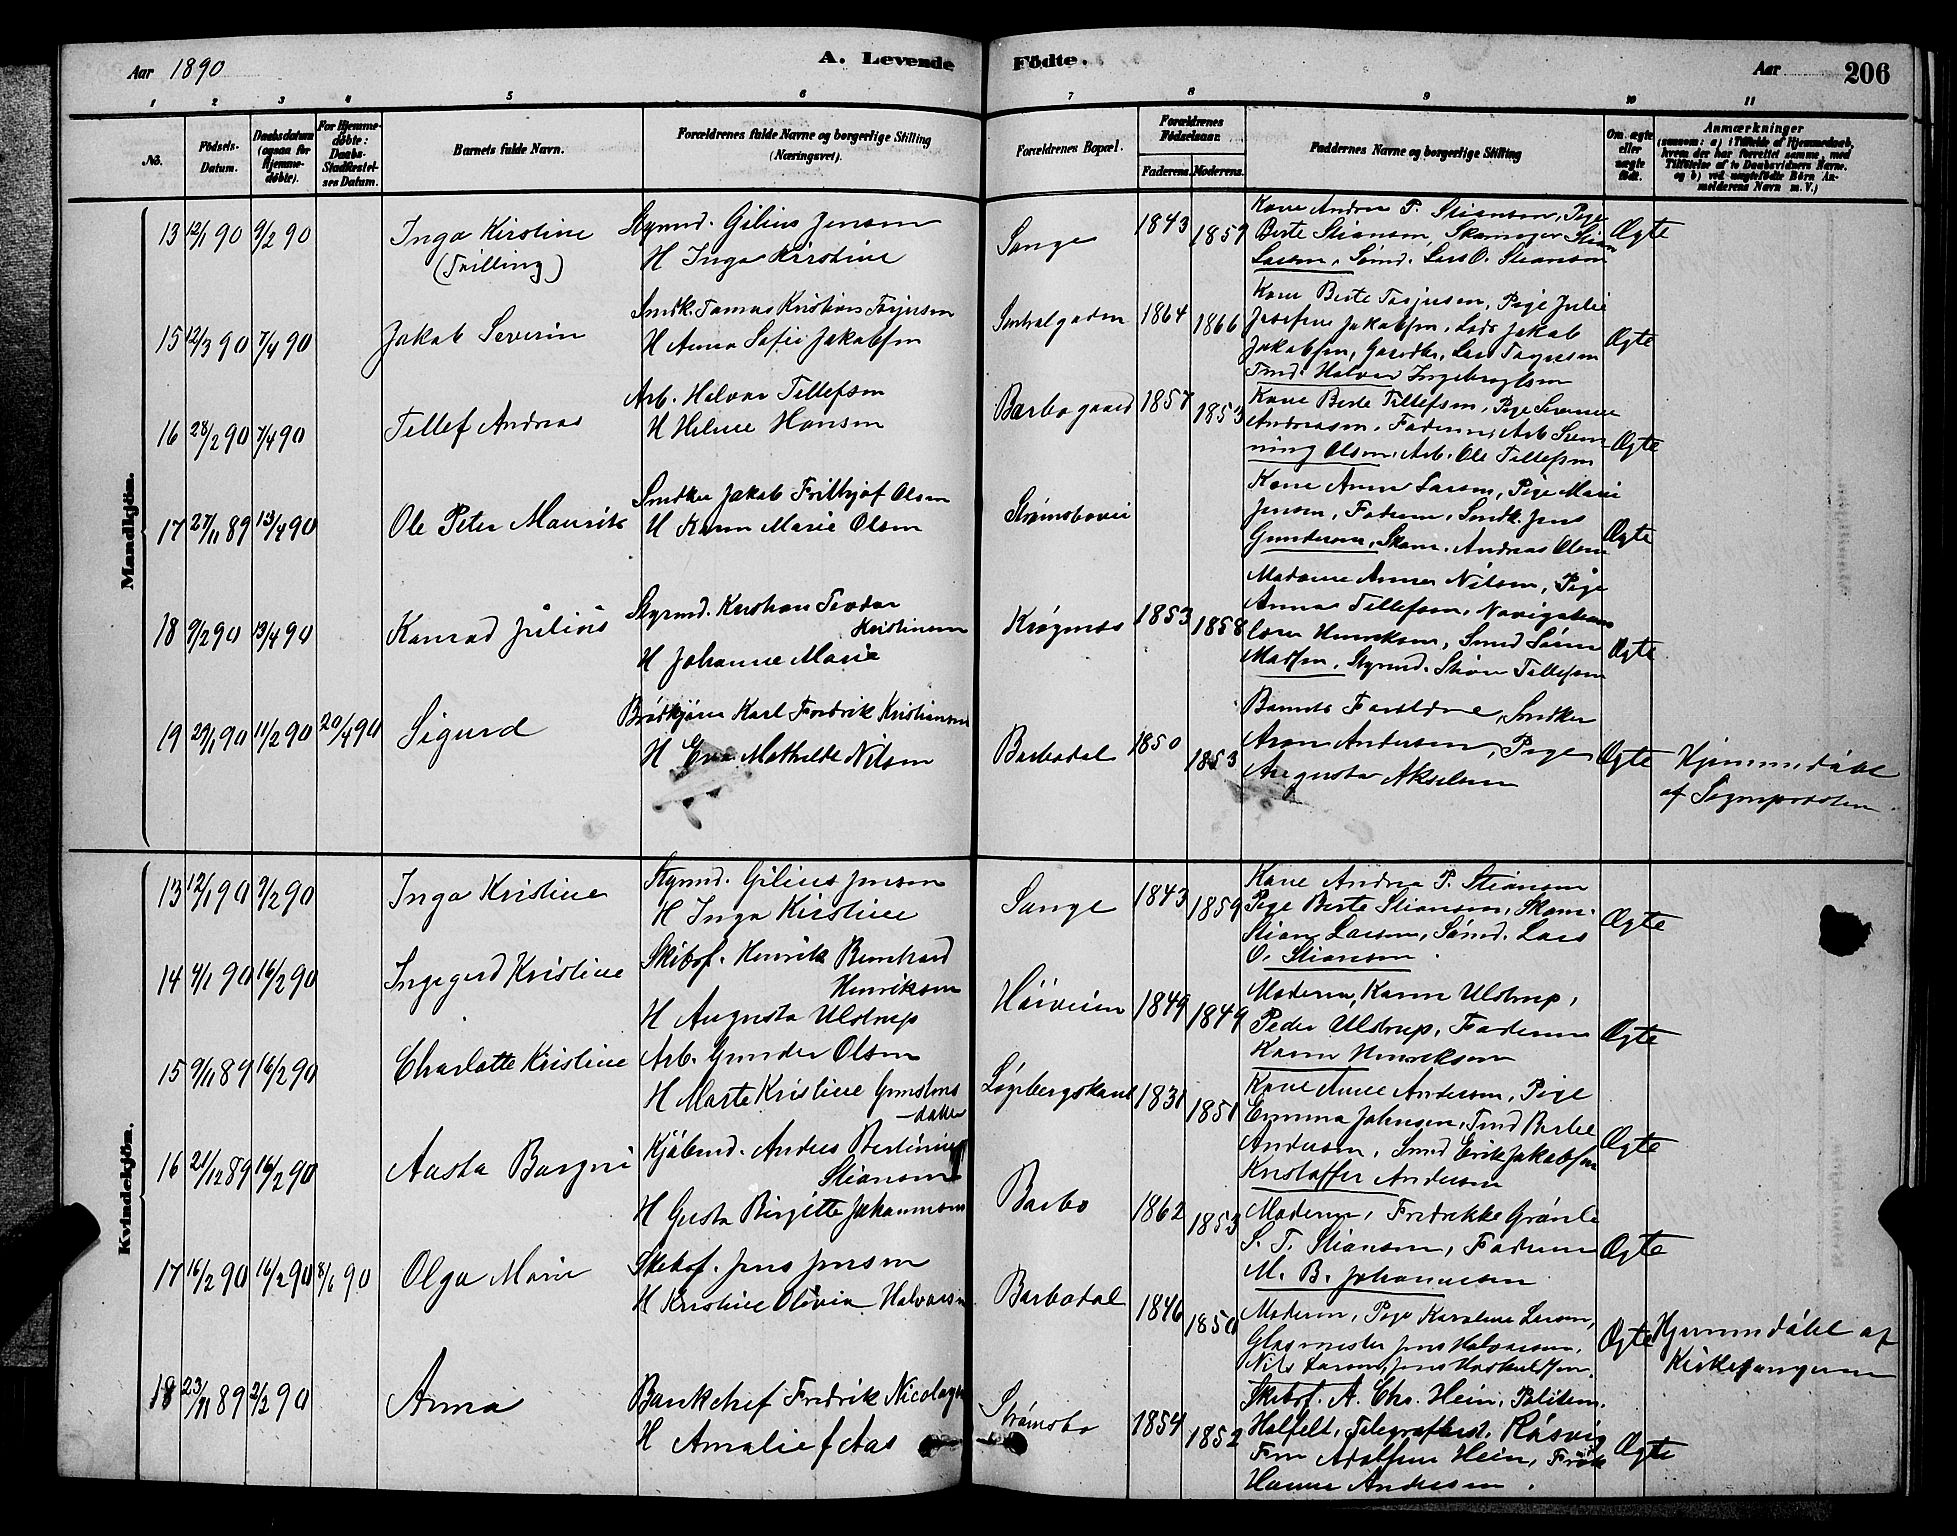 Aar 1890
A. Levende Fødte.
Aar
206
1 2 3 4 5 6 7 8 9 10 11
No.
Födsels-Datum.
Daabsdatum (ogsaa for Hjemmedøbte).
For Hjemmedøbte: Daabs-Stadfæstelses Datum.
Barnets fulde Navn.
Forældrenes fulde Navne og borgerlige Stilling (Næringsvei).
Forældrenes Bopæl.
Forældrenes Födselsaar.
Faderens. Moderens.
Faddernes Navne og borgerlige Stilling
Om ægte eller uægte født.
Anmærkninger (saasom: a) i Tilfælde af Hjemmedaab, hvem der har forrettet samme, med Tilføielse af to Daabsvidners Navne, og b) ved uægtefødte Børn Anmelderens Navn m. V.)
Mandkjön.
13 12/1 90 9/2 90
Inga Kirstine
(Trilling)
Styrmd. Gilius Jensen
H Inga Kirstine
Songe
1843 1859
Kone Andrea T. Stiansen, Pige
Berte Stiansen, Stian
Larsen, Sømd. Lars O. Stiansen
Ægte
15 12/3 90 7/4 90
Jakob Severin
Snedk. Tomas Kristian Torjusen
H Anna Sofie Jakobsen
Sentralgaden
1864 1866
Kone Berte Torjusen, Pige Julie
Josefine Jakobsen, Lods Jakob
Jakobsen, Gaardbr. Lars Torjusen
Tmd. Halvor Ingebregtsen
Ægte
16 28/2 90 7/4 90
Tellef Andreas
Arb. Halvor Tellefsen
H Helene Hansen
Barbogaard
1857 1853
Kone Berte Tellefsen, Pige
Andreasen, Faderen, Arb. Svenning
Olsen, Arb. Ole Tellefsen
Ægte
17 27/11 89 13/4 90
Ole Peter Mauritz
Snedker Jakob Frithjof Olsen
H Karen Marie Olsen
Strømsbovei
Kone Anne Larsen, Pige Marie
Jensen, Faderen, Snedk. Jens
Gundersen, Skom. Andreas Olsen
Ægte
18 9/2 90 13/4 90
Konrad Julius
Styrmd. Kristian Teodor
Kristinsen
H Johanne Marie
Krøgenes
1853 1858
Madame Anna Nilsen, Pige
Anna Tellefsen, Navigations
lærer Henriksen, Smed Søren
Madsen, Styrmd. Tellefsen
Ægte
19 29/1 90 11/2 90 20/4 90
Sigurd
Brødkjører Karl Fredrik Kristiansen
H Eva Mathilde Nilsen
Barbodal
1850 1853
Barnets Forældre, Snedker
Aron Andersen, Pige
Augusta Akselsen
Ægte
Hjemmedøbt
af Sognepresten
Kvindekjön.
13 12/1 90 9/2 90
Inga Kristine
Styrmd. Gilius Jensen
H Inga Kirstine
Songe
1843 1859
Kone Andrea P. Stiansen
Pige Berte Stiansen, Skom.
Stian Larsen, Sømd. Lars
O. Stiansen
Ægte
14 4/1 90 16/2 90
Ingegerd Kristine
Skibsf. Henrik Bernhard
Henriksen
H Augusta Ulstrup
Høiveien
1849 1849
Moderen, Karen Ulstrup,
Peder Ulstrup, Faderen
Karen Henriksen
Ægte
15 9/11 89 16/2 90
Charlotte Kristine
Arb. Gunder Olsen
H Marte Kristine
-datter
1831 1851
Kone Anne Andersen, Pige
Emma Johnsen, Tmd
Andersen, Smed Erik Jakobsen
Kristoffer Andersen
Ægte
16 21/12 89 16/2 90
Aasta Borgni
Kjøbmd. Anders Bertinius
Stiansen
H Gusta Birgitte Johannesen
Barbo
1862 1853
Moderen, Fredrikke Grønli
S. T. Stiansen, Faderen
M. B. Johannesen
Ægte
17 16/2 90 16/2 90 8/6 90
Olga Marie
Skibsf. Jens Jensen
H Kristine Olivia Halvorsen
Barbodal
1846 1850
Moderen, Pige Karoline Larsen,
Glasmester Jens Halvorsen,
Nils Larsen, Jens
Ægte
Hjemmedøbt af
Kirkesangeren
18 23/11 89 2/2 90
Anna
Bankchef Fredrik Nicolaysen
H Amalie f Aas
Strømsbo
1854 1852
Skibsf. A. Chr. Hein, Politim.
Holfelt, Telegrafbest. Røsvig
Fru Adolfine Hein, Frøk
Hanne Andresen.
Ægte